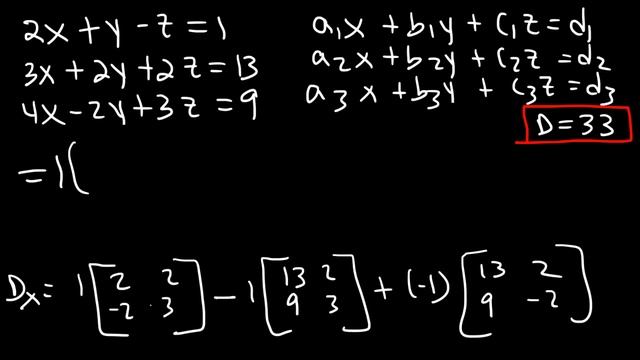 2x + y - z = 1
3x + 2y + 2z = 13
4x - 2y + 3z = 9
a₁x + b₁y + c₁z = d₁
a₂x + b₂y + c₂z = d₂
a₃x + b₃y + c₃z = d₃
D = 33
= 1(
Dₓ = 1 [2 2; -2 3] - 1 [13 2; 9 3] + (-1) [13 2; 9 -2]